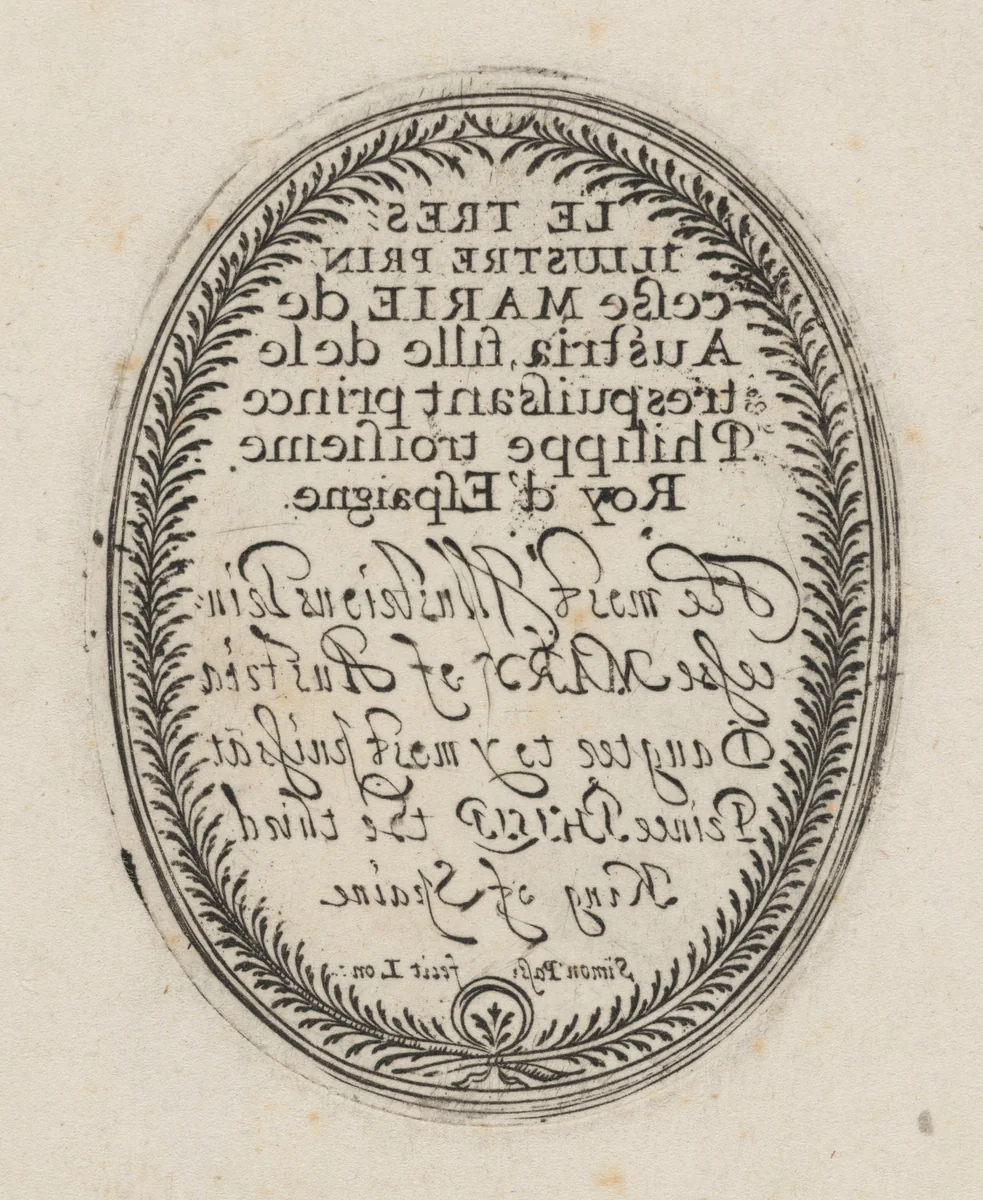 LE TRES:
ILLUSTRE PRIN
ceſse MARIE de
Auſtria, fille dele
trespuiſsant prince
Philippe troiſieme.
Roy d'Eſpaigne.
The most Illustrious Prin:
ceſse MARY of Austria
Daugter to y most puiſsāt
Prince PHILIP the third
King of Spaine
Simon Paſs: fecit Lon: